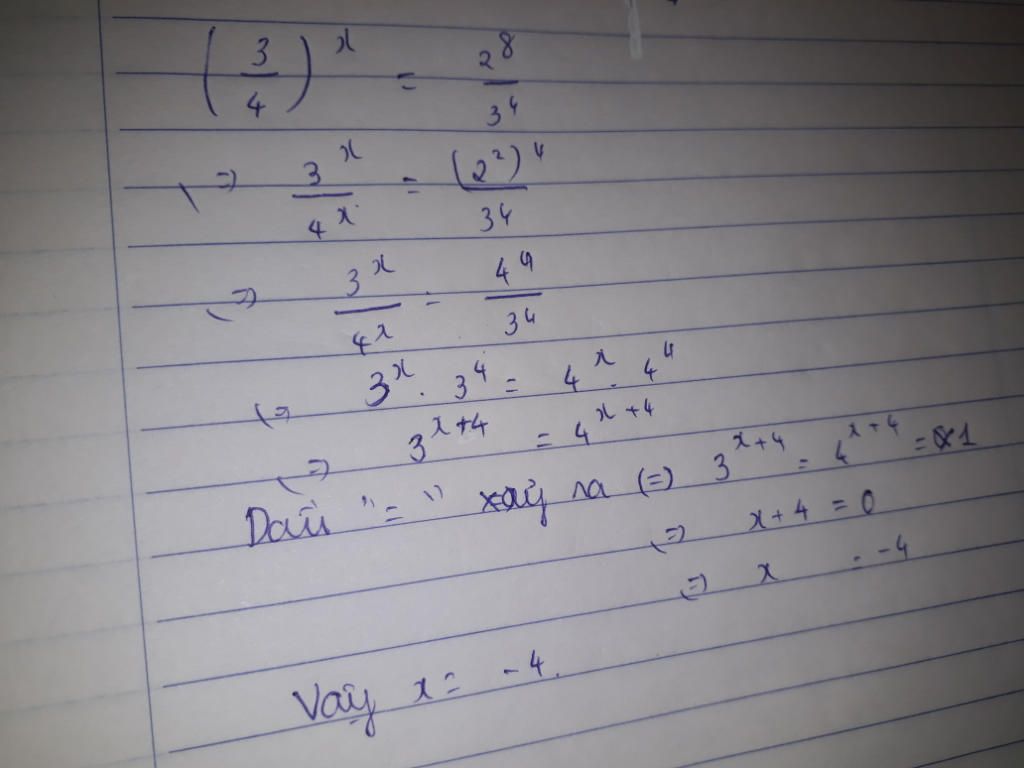 (3/4)^x = 2^8/3^4
(=) 3^x/4^x = (2^2)^4/3^4
(=) 3^x/4^x = 4^4/3^4
(=) 3^x . 3^4 = 4^x . 4^4
(=) 3^(x+4) = 4^(x+4)
Dấu "=" xảy ra (=) 3^(x+4) = 4^(x+4) = 1
(=) x+4 = 0
(=) x = -4
Vậy x = -4.